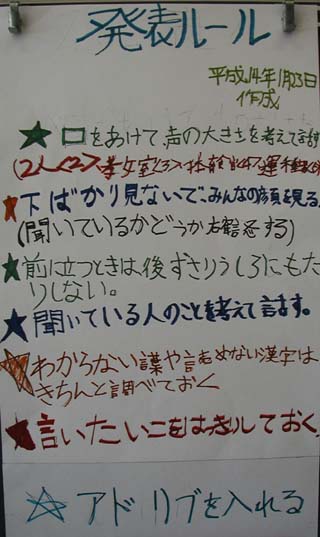 発表ルール
平成14年1月23日
作成
★口をあけて、声の大きさを考えて話す
★下ばかり見ないで、みんなの顔を見る。
(聞いているかどうか確認する)
★前に立つときは後ずさりうしろにもた
りしない。
★聞いている人のことを考えて話す。
★わからない言葉や読めない漢字は
きちんと調べておく
★言いたいことをはっきりしておく。
☆アドリブを入れる